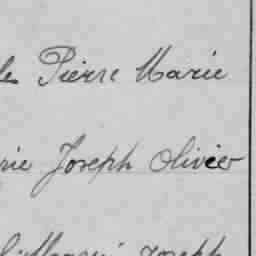 Pierre Marie
rie Joseph Olivier
Joseph